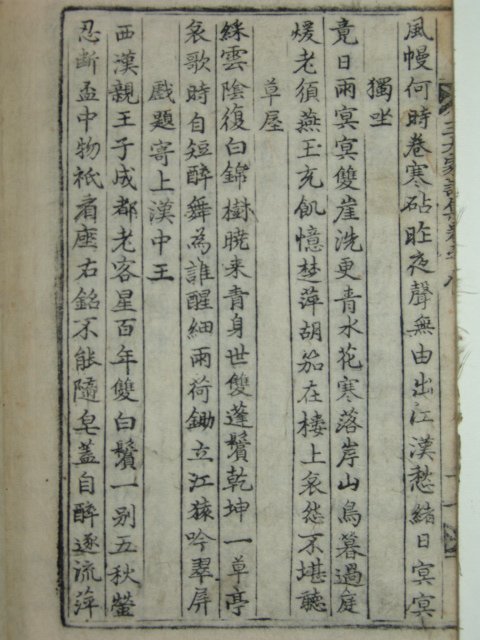 風幔何時卷寒砧昨夜聲無由出江漢愁緒日冥冥
獨坐
竟日雨冥冥雙崖洗更青水花寒落岸山鳥暮過庭
煖老須燕玉充飢憶楚萍胡笳在樓上哀怨不堪聽
草屋
綵雲陰復白錦樹曉來青身世雙蓬鬢乾坤一草亭
哀歌時自短醉舞為誰醒細雨荷鋤立江猿吟翠屏
戲題寄上漢中王
西漢親王子成都老客星百年雙白鬢一別五秋螢
忍斷盃中物祇看座右銘不能隨皂蓋自醉逐流萍